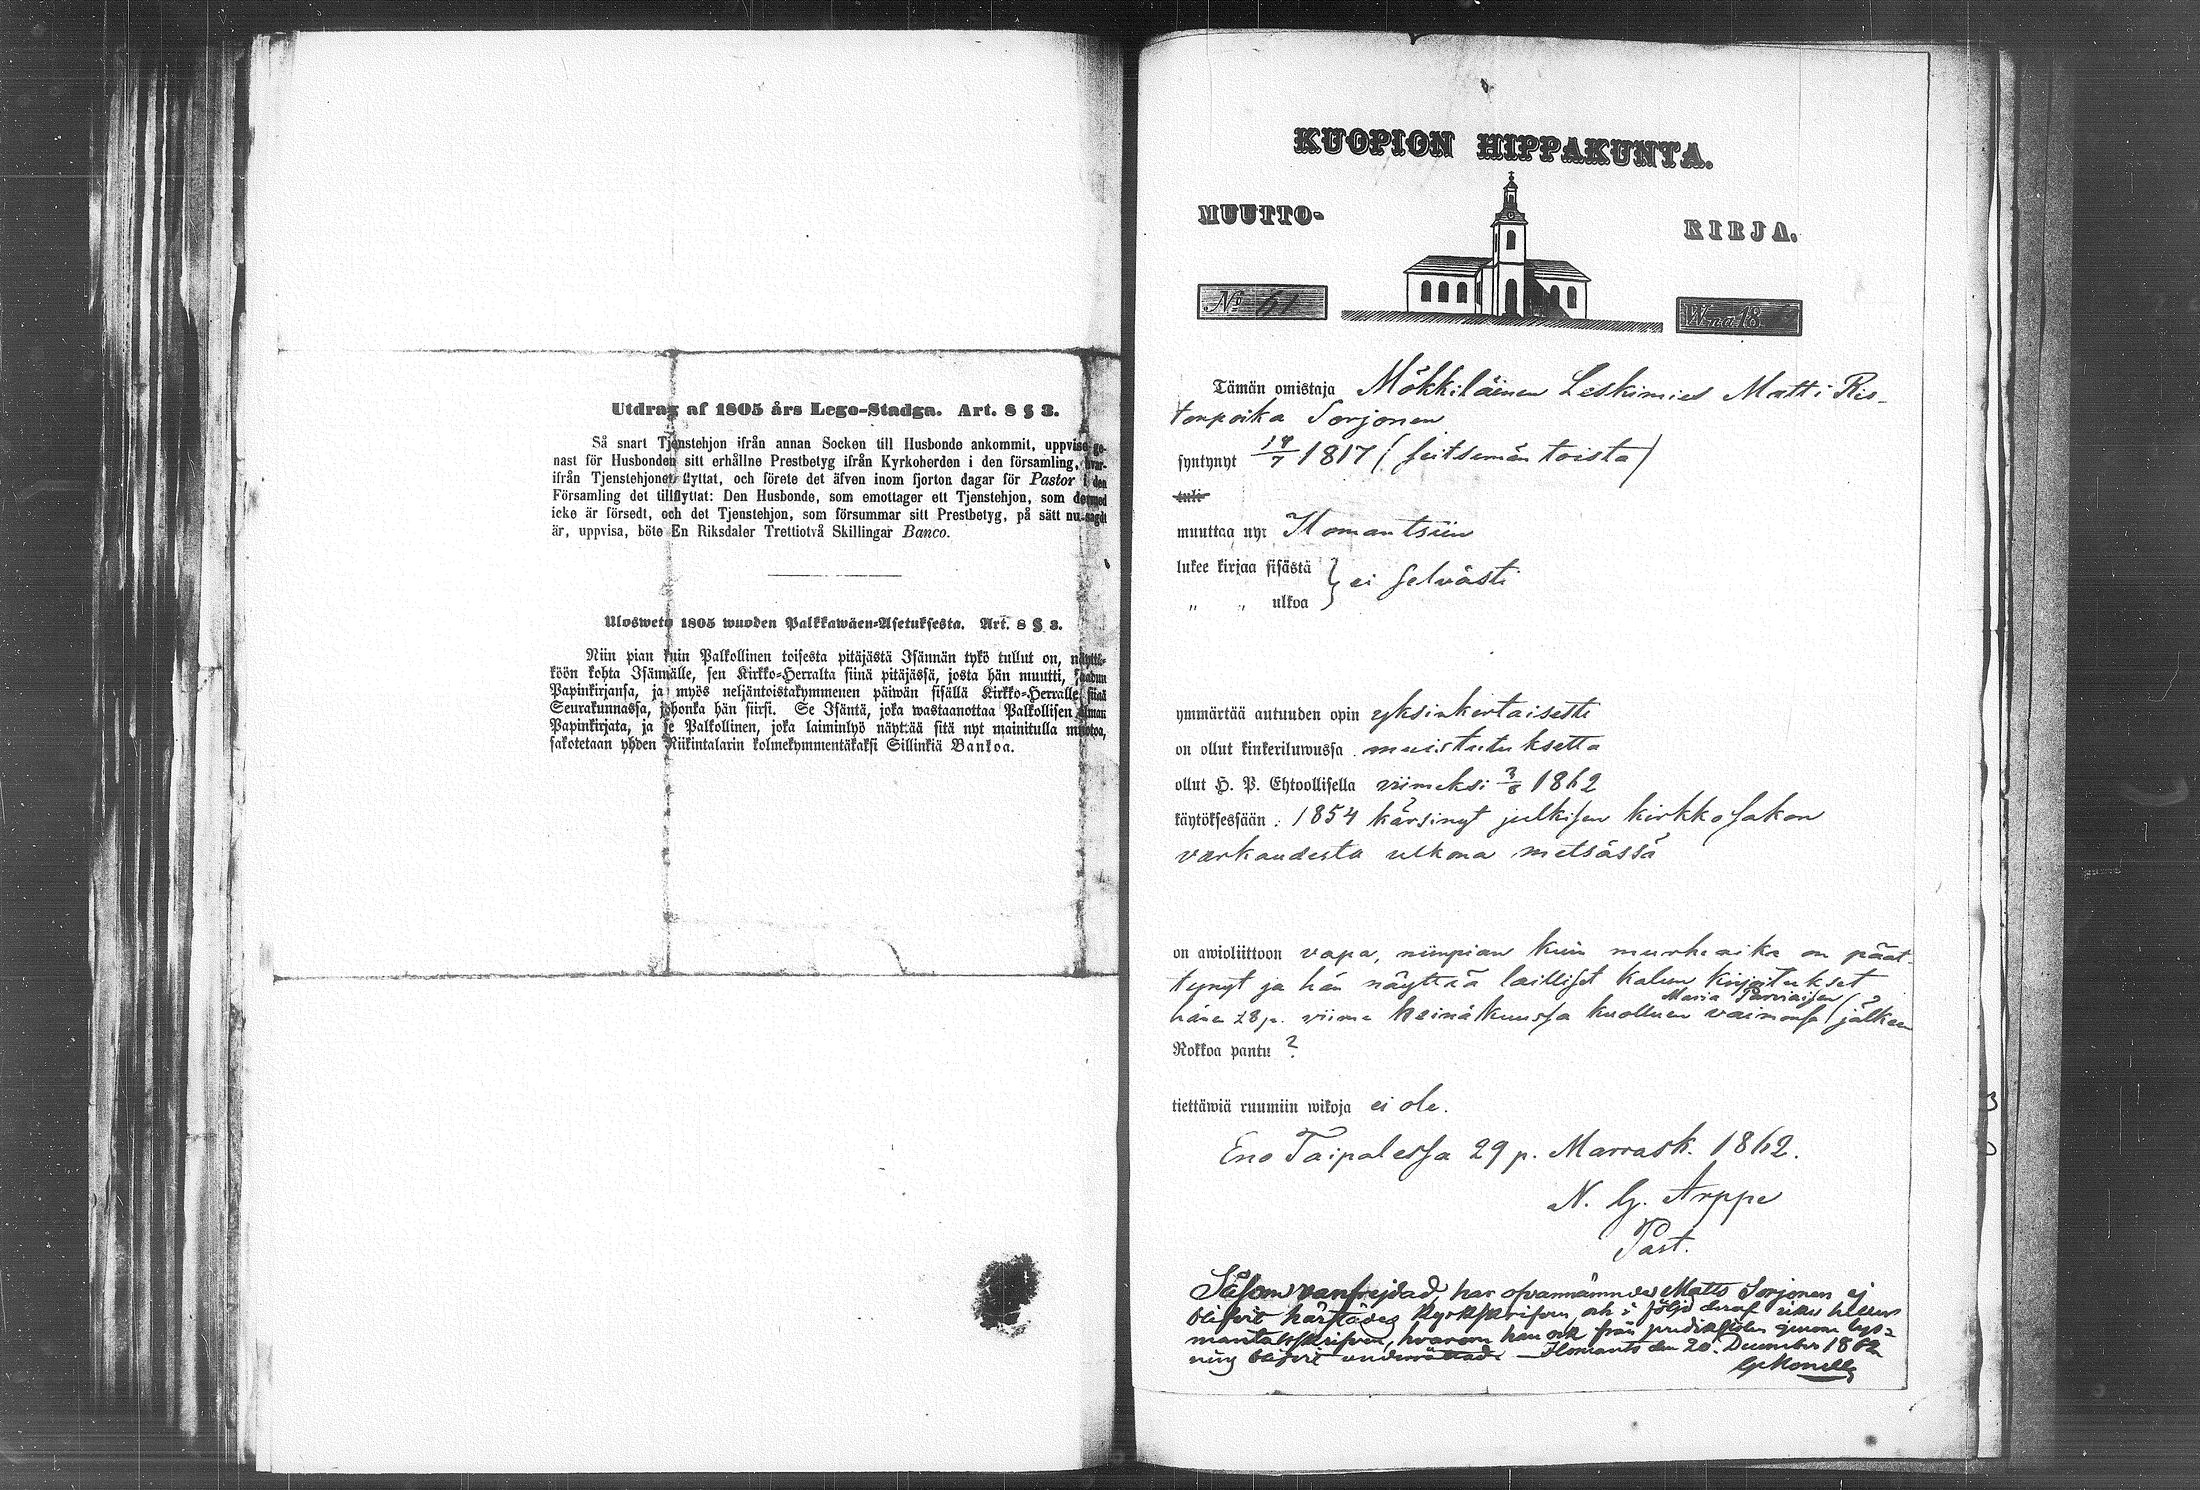 Utdrag af 1805 års Lego-Stadga. Art. 8 § 3.
Så snart Tjenstehjon ifrån annan Socken till Husbonde ankommit, uppvise ge-
nast för Husbonden sitt erhållne Prestbetyg ifrån Kyrkoherden i den församling, hvar-
ifrån Tjenstehjonet flyttat, och förete det äfven inom fjorton dagar för Pastor i den
Församling det tillflyttat: Den Husbonde, som emottager ett Tjenstehjon, som dermed
icke är försedt, och det Tjenstehjon, som försummar sitt Prestbetyg, på sätt nu sagdt
är, uppvisa, böte En Riksdaler Trettiotvå Skillingar Banco.
Ulosweto 1805 wuoden Palkkawäen-Asetuksesta. Art. 8 § 3.
Niin pian kuin Palkollinen toisesta pitäjästä Isännän tykö tullut on, näyttä-
köön kohta Isännälle, sen Kirkko-Herralta siinä pitäjässä, josta hän muutti, saadun
Papinkirjansa, ja myös neljäntoistakymmenen päiwän sisällä Kirkko-Herralle siinä
Seurakunnassa, johonka hän siirsi. Se Isäntä, joka wastaanottaa Palkollisen ilman
Papinkirjata, ja se Palkollinen, joka laiminlyö näyttää sitä nyt mainitulla muotoa,
sakotetaan yhden Riikintalarin kolmekymmentäkaksi Sillinkiä Bankoa.
KUOPION HIPPAKUNTA.
MUUTTO- KIRJA.
No 61 Wna 18
Tämän omistaja Mökkiläinen Leskimies Matti Ris-
tonpoika Sorjonen
syntynyt 17/7 1817 (seitsemän toista)
tuli
muuttaa nyt Ilomantsiin
lukee kirjaa sisästä } ei selvästi
" " ulkoa
ymmärtää autuuden opin yksinkertaisesti
on ollut kinkeriluwussa muistutuksetta
ollut H. P. Ehtoollisella viimeksi 3/8 1862
käytöksessään : 1854 kärsinyt julkisen kirkkosakon
varkaudesta ulkona metsässä
on awioliittoon vapa, niinpian kuin murheaika on päät-
tynyt ja hän näyttää lailliset kalun kirjoitukset
Maria Parviaisen
hänen 28 p. viime heinäkuussa kuolluen vaimonsa jälkeen
Rokkoa pantu ?
tiettäwiä ruumiin wikoja ei ole.
Eno Taipalessa 29 p. Marrask. 1862.
N. G. Arppe
Past.
Såsom vanfrejdad, har ofvannämnde Matts Sorjonen ej
blifvit härstädes kyrkskrifven, och i följd deraf icke heller
mantalsskrifven, hvarom han ock från predikstolen genom lys-
ning blifvit underrättad. Ilomants den 20. December 1862